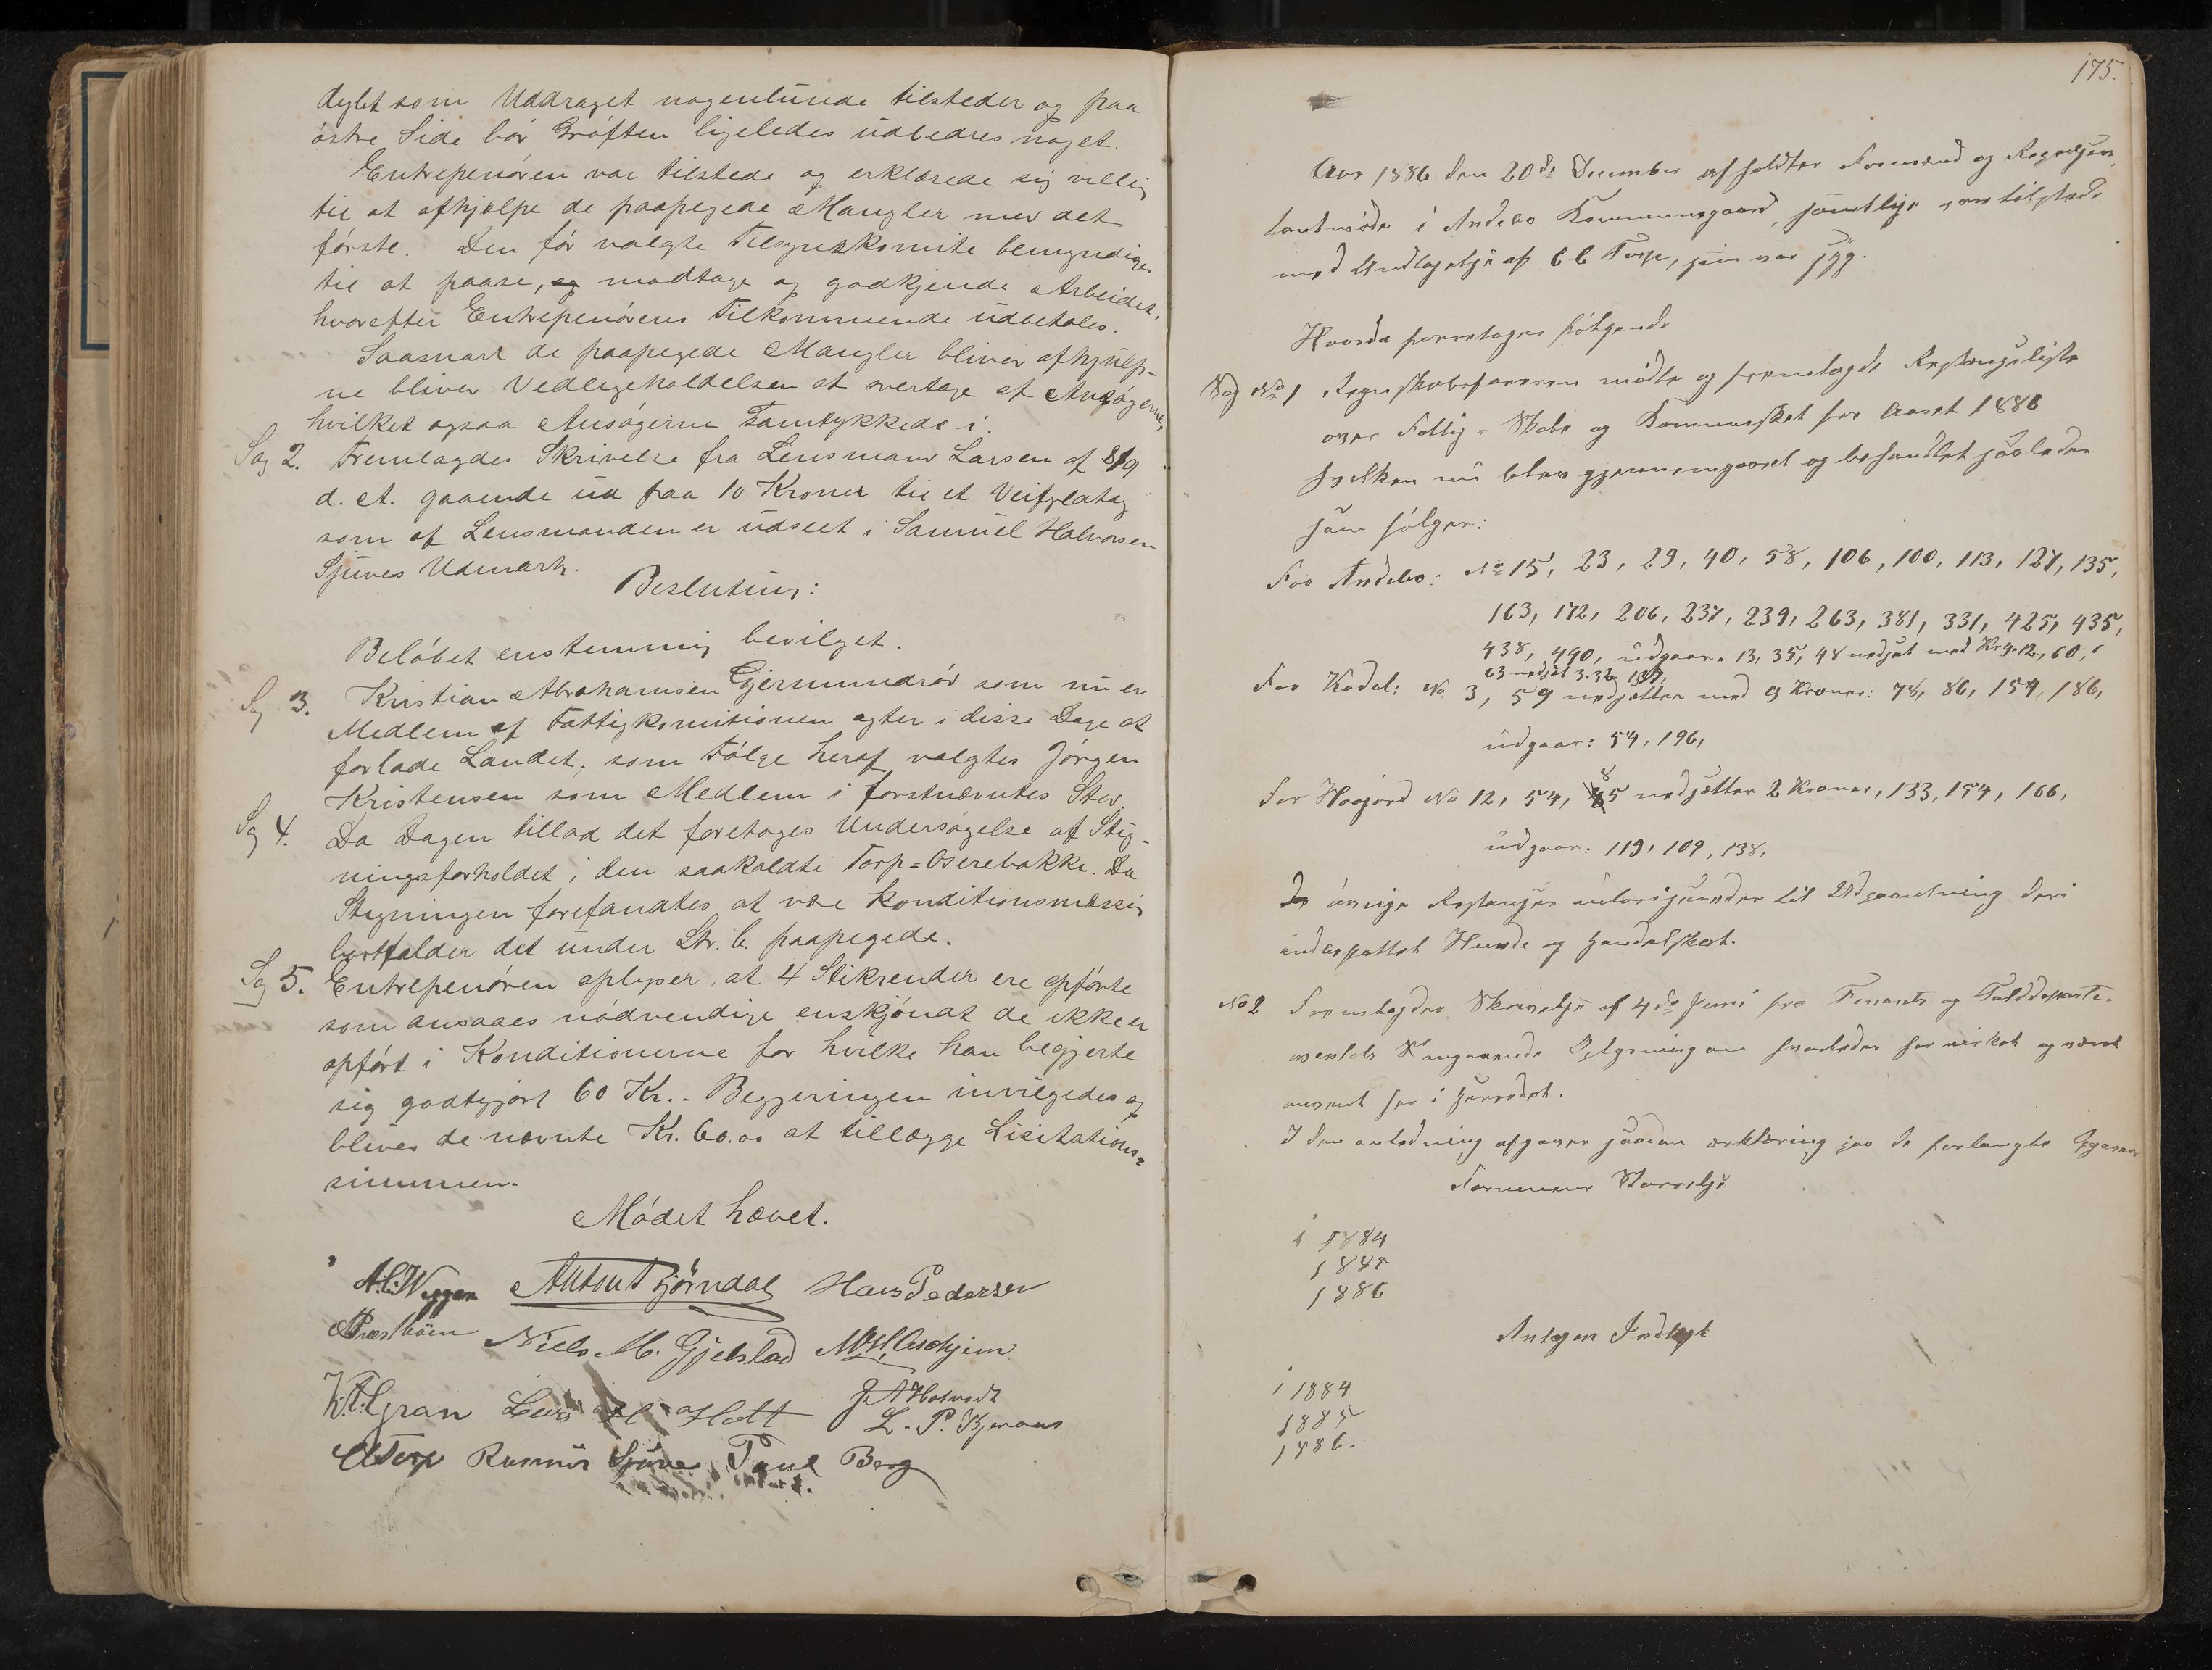 dybt som Uddraget nogenlunde tilsteder og paa
östre Side bör Gröften ligeledes udbedres noget.
Entrepenören var tilstede og erklærede sig villig
til at afhjælpe de paapegede Mangler med det
förste. Den för valgte Tilsynskomite bemyndiges
til at paase, og modtage og godkjende Arbeidet,
hvorefter Entrepenörens Tilkommende udbetales.
Saasnart de paapegede Mangler bliver afhjulp-
ne bliver Vedligeholdelsen at overtage af Ansögerne,
hvilket ogsaa Ansögerne Samtykkede i.
Sag 2. Fremlagdes Skrivelse fra Lensmand Larsen af 2/9
d. A. gaaende ud paa 10 Kroner til et
som af Lensmanden er udseet i Samuel Halvorsen
Sjuves Udmark.
Beslutning:
Belöbet enstemmig bevilget.
Sag 3. Kristian Abrahamsen Gjermundröd som nu er
Medlem af Fattigkomitionen agter i disse Dage at
forlade Landet, som Fölge heraf valgtes Jörgen
Kristensen som Medlem i forstnævntes Sted.
Sag 4. Da Dagen tillod det foretoges Undersögelse af Stig-
ningsforholdet i den saakaldte Torp=Oserebakke. Da
Stigningen forefandtes at være konditionsmæssig
bortfalder det under Ltr. b. paapegede.
Sag 5. Entrepenören oplyser, at 4 Stikrender ere opförte
som ansaaes nödvendige enskjöndt de ikke er
opfört i Konditionerne for hvilke han begjerte
sig godtgjort 60 Kr. - Begjeringen invilgedes og
blives de nævnte Kr. 60.00 at tillægge Lisitations=
summen.
Mödet hævet.
Anton Bjørndal Hans Pedersen
Niels M. Gjelstad
Gran Lars H. Holt J A Hotvedt
L. P.
Torp Rasmus Sjuve Paul Berg
175.
Aar 1886 den 20de December afholdtes Formænd og Repræsen-
tantmöde i Andebo Kommunegaard, samtlige vare tilstede
med Undtagelse af C C Torp, som var syg.
Hvorda foretoges fölgende
Sag No 1 Regnskabsföreren mödte og fremlagde Restanseliste
over Fattig- Skole og Kommuneskat for Aaret 1886
hvilken nu blev gjennemgaaet og behandlet saaledes
som fölger:
For Andebo: No 15, 23, 29, 40, 58, 106, 100, 113, 127, 135,
163, 172, 206, 237, 239, 263, 381, 331, 425, 435,
438, 440, udgaar. 13, 35, 48 nedsat med Kr 4.12, 60,
63 nedsat 3.32 137,
For Kodal: No 3, 59 nedsættes med 9 Kroner: 78, 86, 154, 186,
udgaar: 54, 196,
For Höijord No 12, 54, 85 nedsættes 2 Kroner, 133, 154, 166,
udgaar: 119, 109, 138,
De övrige Restanser autoriseredes til Udpantning deri
indbefattet Hunde og Handelsskat.
No 2 Fremlagdes Skrivelse af 4de Juni fra Finants og Tolddeparte-
mentet Oplysning om hvorledes har virket og været
anvendt her i Herredet.
I den anledning afgives saadan erklæring paa de forlangte
i 1884
1885
1886
Antagen Indtægt
i 1884
1885
1886.